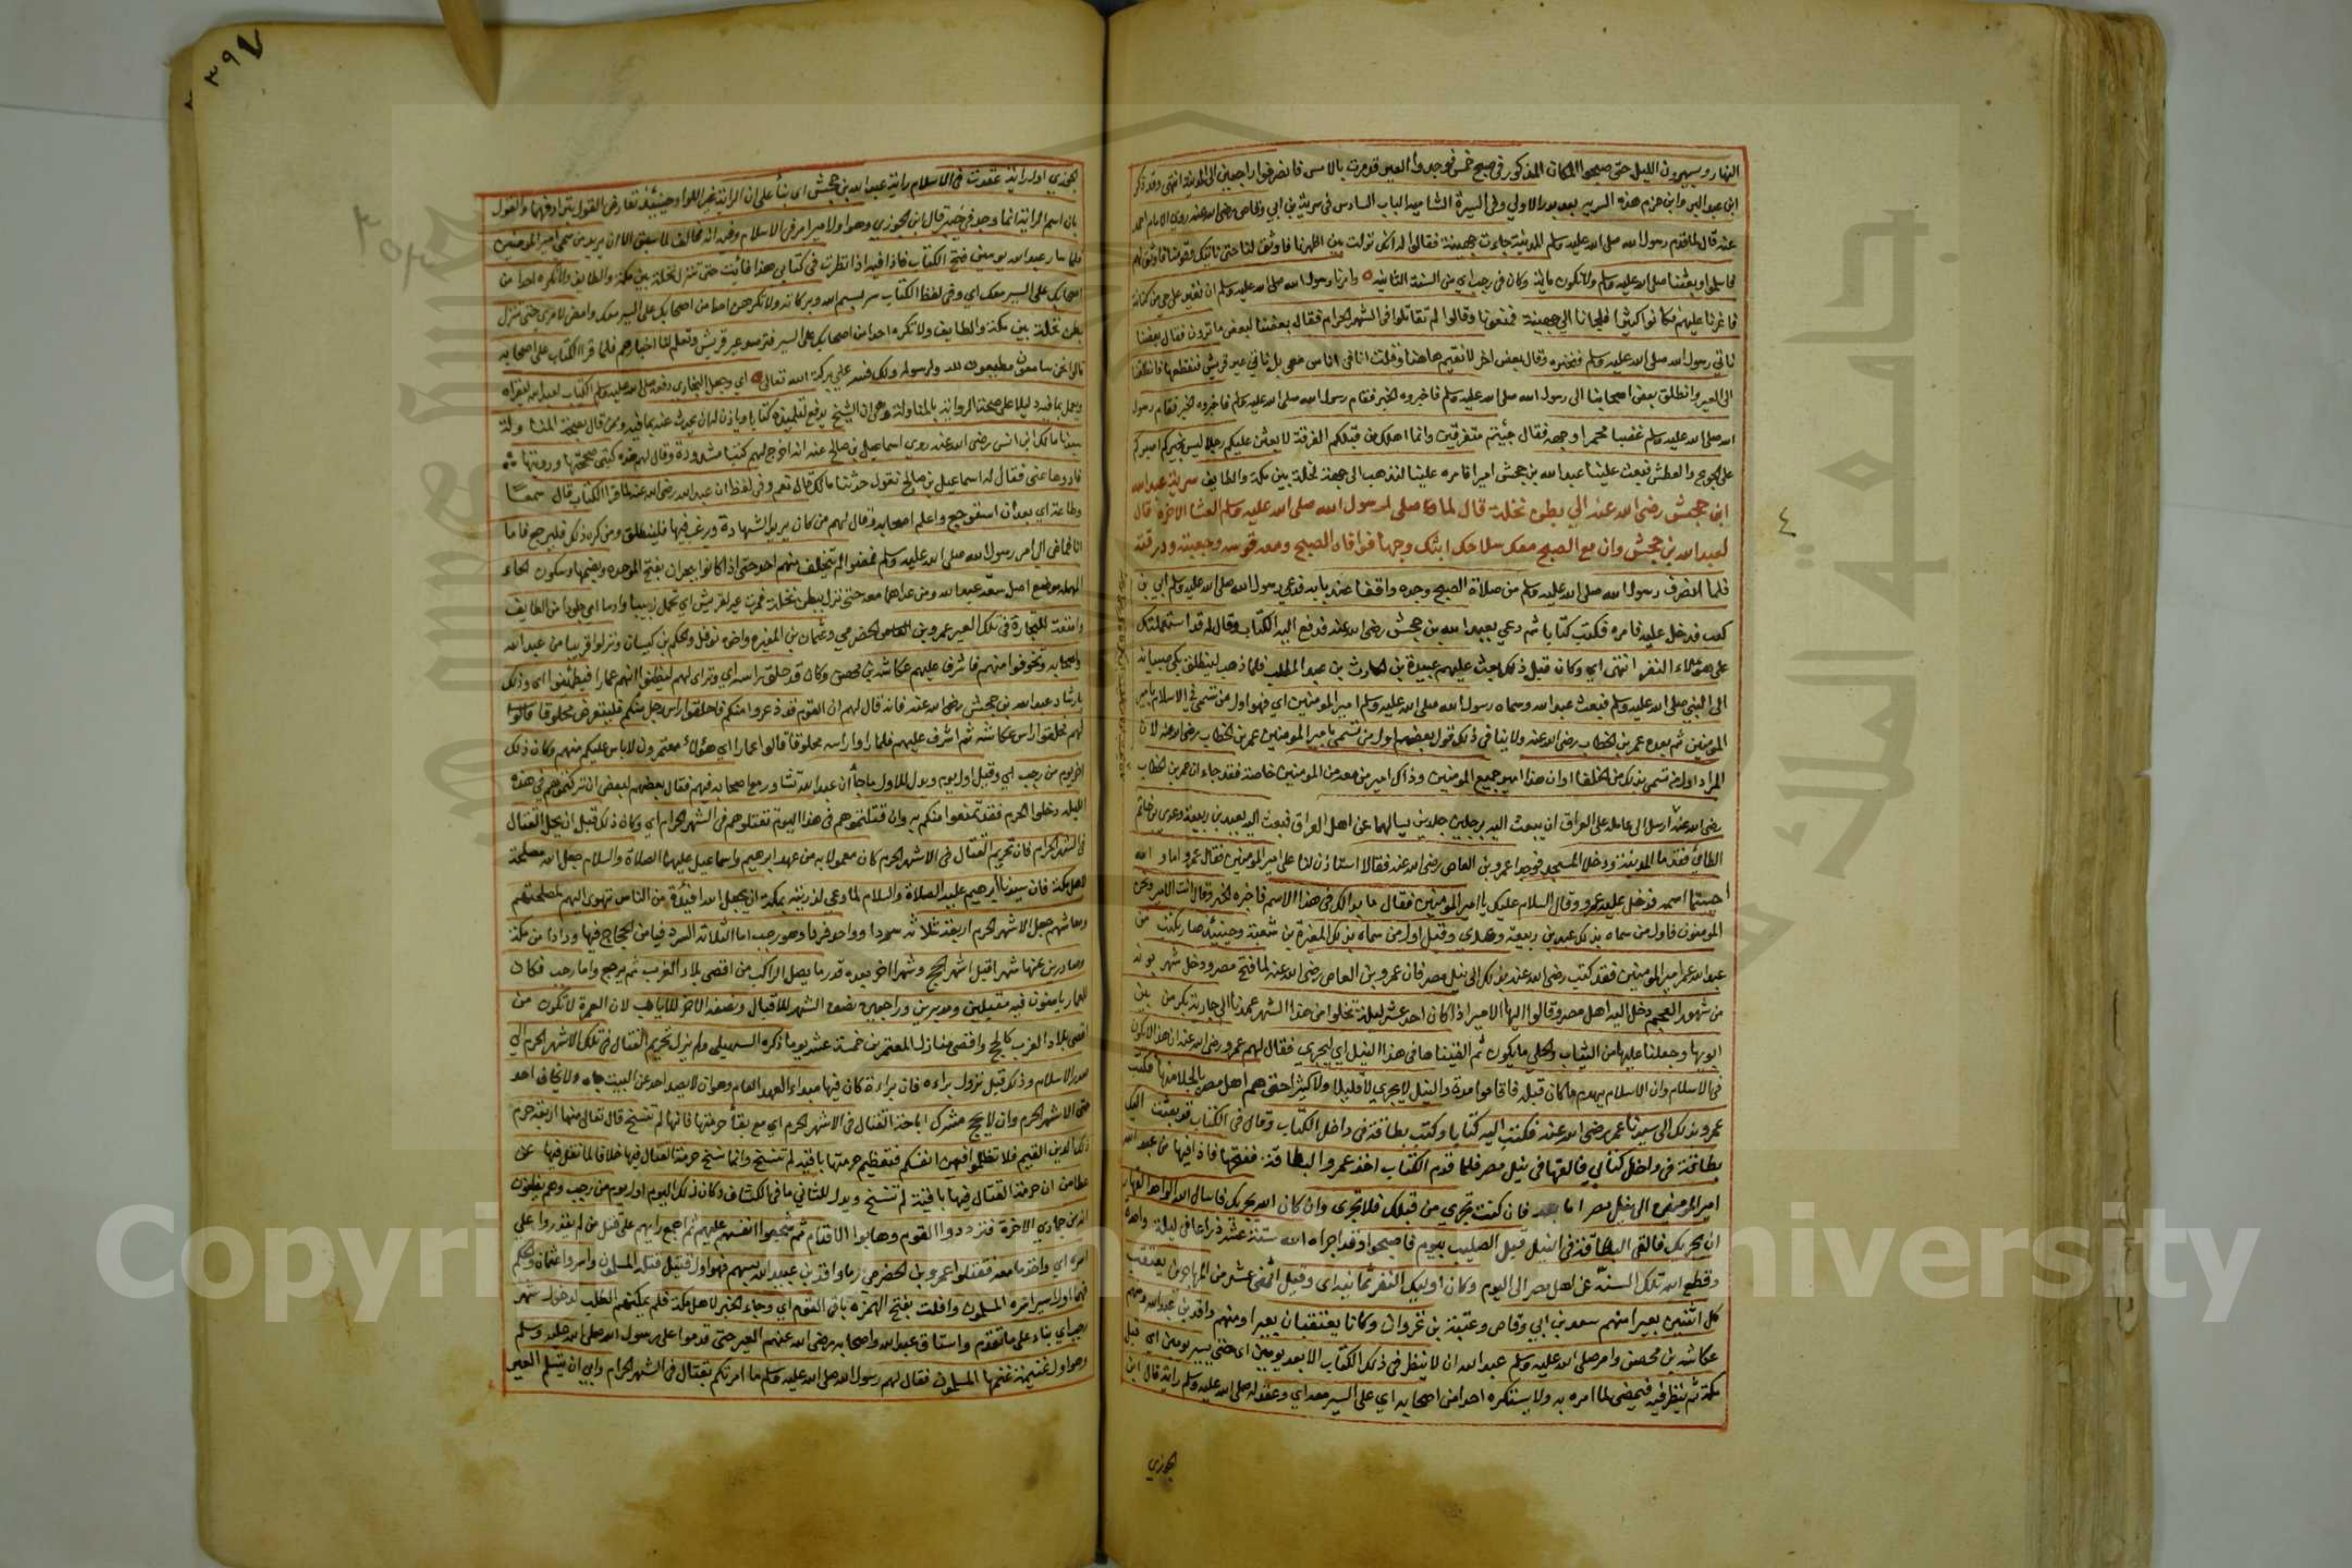 النهار ويسيرون الليل حتى صبحوا المكان المذكور في صبح خمس فوجدوا العير قد مرت بالامس فانصرفوا راجعين الى المدينة انتهى وقد ذكر
ابن عبد البر وابن حزم هذه السرية بعد بدر الاولي وفي السيرة الشامية الباب السادس في سرية بن ابي وقاص رضي الله عنه روي الامام احمد
عنه قال لما قدم رسول الله صلى الله عليه وسلم المدينة جاءت جهينة فقالوا له انك نزلت بين اظهرنا فاوثق لنا حتى ناتيك وقومنا فاوثق لهم
فاسلموا وبعثنا صلى الله عليه وسلم ولا نكون ماية وكان في رجب اي من السنة الثانية وامرنا رسول الله صلى الله عليه وسلم ان نغير على حي من كنانة
فاغرنا عليهم فكانوا كثيرا فلجانا الي جهينة فمنعونا وقالوا لم تقاتلوا في الشهر الحرام فقال بعضنا لبعض ما ترون فقال بعضنا
ناتي رسول الله صلى الله عليه وسلم فنخبره وقال بعض اخر لا نقيم هاهنا وقلت انا في اناس معي بل ناتي عير قريش فنقطعها فانطلقنا
الى العير وانطلق بعض اصحابنا الى رسول الله صلى الله عليه وسلم فاخبروه الخبر فقام رسول الله صلى الله عليه وسلم فاخبروه الخبر فقام رسول
الله صلى الله عليه وسلم غضبا محمرا وجهه فقال جيتم متفرقين وانما اهلك من قبلكم الفرقة لابعثن عليكم رجلا ليس بخيركم اصبركم
على الجوع والعطش فبعث علينا عبد الله بن جحش اميرا فامره علينا لنذهب الى جهة نخلة بين مكة والطايف سرية عبد الله
ابن جحش رضي الله عنه الي بطن نخلة قال لما صلى رسول الله صلى الله عليه وسلم العشا الاخرة قال
لعبد الله بن جحش وان مع الصبح معك سلاحك ابثك وجها فوافاه الصبح ومعه قوسه وجعبته ودرقته
فلما انصرف رسول الله صلى الله عليه وسلم من صلاة الصبح وجده واقفا عند بابه فدعي رسول الله صلى الله عليه وسلم ابي بن
كعب فدخل عليه فامره فكتب كتابا ثم دعي بعبد الله بن جحش رضي الله عنه فدفع اليه الكتاب وقال له قد استعملتك
على هؤلاء النفر انتهى اي وكان قبل ذلك بعث عليهم عبيدة بن الحارث بن عبد المطلب فلما ذهب لينطلق بكي صبيانه
الى النبي صلى الله عليه وسلم فبعث عبد الله وسماه رسول الله صلى الله عليه وسلم امير المؤمنين اي فهو اول من تسمي في الاسلام بامير
المؤمنين ثم بعده عمر بن الخطاب رضي الله عنه ولا ينافي ذلك قول بعضهم اول من تسمي بامير المؤمنين عمر بن الخطاب رضي الله عنه لان
المراد اول من تسمي بذلك من الخلفا او ان هذا امير جميع المومنين وذاك امير من معه من المومنين خاصة فقد جاء ان عمر بن الخطاب
رضي الله عنه ارسل الى عامله على العراق ان يبعث اليه برجلين جلدين يسالهما عن اهل العراق فبعث اليه بعبد بن ربيعة وعدي بن حاتم
الطائي فقدما المدينة ودخلا المسجد فوجدا عمرو بن العاص رضي الله عنه فقالا استاذن لنا على امير المومنين فقال عمرو انتما والله
اصبتما اسمه فدخل عليه عمرو وقال السلام عليك يا امير المومنين فقال ما بدا لك في هذا الاسم فاخبره الخبر وقال انت الامير ونحن
المومنون فاول من سماه بذلك عبد بن ربيعة وعدي وقيل اول من سماه بذلك المغيرة بن شعبة وحينئذ صار يكتب من
عبد الله عمر امير المومنين فقد كتب رضي الله عنه بذلك الى نيل مصر فان عمرو بن العاص رضي الله عنه لما فتح مصر ودخل شهر بونه
من شهور العجم دخل اليه اهل مصر وقالوا ايها الامير اذا كان احد عشر ليلة تخلوا من هذا الشهر عمدنا الي جارية بكر من بين
ابويها وجعلنا عليها من الثياب والحلي ما يكون ثم القيناها في هذا النيل اي ليجري فقال لهم عمرو رضي الله عنه ان هذا لا يكون
في الاسلام وان الاسلام يهدم ما كان قبله فاقاموا مدة والنيل لا يجري لا قليلا ولا كثيرا حتى هم اهل مصر بالجلا منها فكتب
عمرو بذلك الى سيدنا عمر رضي الله عنه فكتب اليه كتابا وكتب بطاقة في داخل الكتاب وقال في الكتاب قد بعثت اليك
بطاقة في داخل كتابي فالقها في نيل مصر فلما قدم الكتاب اخذ عمرو البطاقة ففتحها فاذا فيها من عبد الله
امير المومنين الى نيل مصر اما بعد فان كنت تجري من قبلك فلا تجري وان كان الله يجريك فاسال الله الواحد القهار
ان يجريك فالقى البطاقة في النيل قبل الصليب بيوم فاصبحوا وقد اجراه الله ستة عشر ذراعا في ليلة واحدة
وقطع الله تلك السنة عن اهل مصر الى اليوم وكان اوليك النفر ثمانية اي وقيل اثني عشر من المهاجرين يعتقب
كل اثنين بعيرا منهم سعد بن ابي وقاص وعتبة بن غزوان وكانا يعتقبان بعيرا ومنهم واقد بن عبد الله ومنهم
عكاشة بن محصن وامر صلى الله عليه وسلم عبد الله ان لا ينظر في ذلك الكتاب الا بعد يومين اي حتى يسير يومين اي قبل
مكة ثم ينظر فيه فيمضي لما امره به ولا يستكره احدا من اصحابه اي على السير معه اي وعقد له صلى الله عليه وسلم راية قال ابن
الجوزي
٤
٣٩٧
الجوزي اول راية عقدت في الاسلام راية عبد الله بن جحش اي بناء على ان الراية غير اللوا وحينئذ تعارض القول بترادفهما والقول
بان اسم الراية انما وجد في خيبر قال ابن الجوزي وهو اول امير امر في الاسلام وفيه انه مخالف لما سبق الا ان يريد من سمي امير المومنين
فلما سار عبد الله يومين فتح الكتاب فاذا فيه اذا نظرت في كتابي هذا فامض حتى تنزل نخلة بين مكة والطايف ولا تكره احدا من
اصحابك على السير معك اي وفي لفظ الكتاب سر بسم الله وبركاته ولا تكرهن احدا من اصحابك على السير معك وامض لامري حتى تنزل
بطن نخلة بين مكة والطايف ولا تكره احدا من اصحابك على السير فترصد عير قريش وتعلم لنا اخبارهم فلما قرا الكتاب على اصحابه
قالوا نحن سامعون مطيعون لله ولرسوله ولك فسر علي بركة الله تعالى اي وجعل البخاري دفعه صلى الله عليه وسلم الكتاب لعبد الله ليقراه
ويعمل بما فيه دليلا على صحة الرواية بالمناولة وهي ان الشيخ يدفع لتلميذه كتابا وياذن له ان يحدث عنه بما فيه وممن قال بصحة المناولة
سيدنا مالك ابن انس رضي الله عنه روي اسماعيل بن صالح عنه انه اخرج لهم كتبا مشدودة وقال لهم هذه كتبي صححتها ورويتها
فارووها عني فقال له اسماعيل بن صالح نقول حدثنا مالك قال نعم وفي لفظ ان عبد الله رضي الله عنه لما قرا الكتاب قال سمعا
وطاعة اي بعد ان استرجع واعلم اصحابه وقال لهم من كان يريد الشهادة ويرغب فيها فلينطلق ومن كره ذلك فليرجع فاما
انا فماض الى امر رسول الله صلى الله عليه وسلم فمضوا لم يتخلف منهم احد حتى اذا كانوا ببحران بفتح الموحده وبضمها وسكون الحاء
المهمله موضع اضل سعد بعيرا له ومن عداهما معه حتى نزل ببطن نخلة فمرت عير لقريش اي تحمل زبيبا وادما اي جلودا من الطايف
وامتعة للتجارة في تلك العير عمرو بن الحضرمي وعثمان بن المغيره واخوه نوفل والحكم بن كيسان ونزلوا قريبا من عبد الله
واصحابه وتخوفوا منهم فاشرف عليهم عكاشة بن محصن وكان قد حلق راسه اي وتراى لهم ليظنوا انهم عمارا فيطمئنوا اي وذلك
بارشاد عبد الله بن جحش رضي الله عنه فانه قال لهم ان القوم قد ذعروا منكم فاحلقوا راس رجل منكم فليتعرض محلوقا قالوا
لهم فحلقوا راس عكاشة ثم اشرف عليهم فلما راوا راسه محلوقا قالوا عمارا اي هؤلاء معتمرون لا باس عليكم منهم وكان ذلك
اخر يوم من رجب اي وقيل اول يوم ويدل للاول ما جاء ان عبد الله تشاور مع اصحابه فيهم فقال بعضهم لبعض ان تركتموهم في هذه
الليله دخلوا الحرم فقد تمنعوا منكم به وان قتلتموهم في هذا اليوم تقتلوهم في الشهر الحرام اي وكان ذلك قبل ان يحل القتال
في الشهر الحرام فان تحريم القتال في الاشهر الحرم كان معمولا به من عهد ابراهيم واسماعيل عليهما الصلاة والسلام جعل الله مصلحة
لاهل مكة فان سيدنا ابراهيم عليه الصلاة والسلام لما دعي لذريته بمكة ان يجعل الله افئدة من الناس تهوى اليهم لمصلحتهم
ومعاشهم جعل الاشهر الحرم اربعة ثلاثة سردا وواحد فردا وهو رجب اما الثلاثة السرد فيامن الحجاج فيها واردين مكة
وصادرين عنها شهرا قبل اشهر الحج وشهرا اخر بعده قدر ما يصل الراكب من اقصى بلاد العرب ثم يرجع واما رجب فكان
للعمار يامنون فيه مقبلين ومدبرين وراجعين نصف الشهر للاقبال ونصفه الاخر للاياب لان العمرة لا تكون من
اقصى بلاد العرب كالحج واقصى منازل المعتمرين خمسة عشر يوما ذكره السهيلي ولم يزل تحريم القتال في تلك الاشهر الحرم الي
صدر الاسلام وذلك قبل نزول براءه فان براءة كان فيها مبدا العهد العام وهو ان لا يصد احد عن البيت جاءه ولا يخاف احد
في الاشهر الحرم وان لا يحج مشرك اباحة القتال في الاشهر الحرم اي مع بقاء حرمتها فانها لم تنسخ قال تعالى منها اربعة حرم
ذلك الدين القيم فلا تظلموا فيهن انفسكم فتعظيم حرمتها باقية لم تنسخ وانما نسخ حرمة القتال فيها خلافا لما نقل فيها عن
عطا من ان حرمة القتال فيها باقية لم تنسخ ويدل للثاني ما في الكشاف وكان ذلك اليوم اول يوم من رجب وهم يظنون
انه من جمادى الاخرة فترددوا القوم وهابوا الاقدام ثم شجعوا انفسهم عليهم ثم اجمع رايهم على قتل من لم يقدروا على
اسره اي واخذ ما معه فقتلوا عمرو بن الحضرمي رماه واقد بن عبد الله بسهم فهو اول قتيل قتله المسلمون واسروا عثمان والحكم
فهما اول اسير اسره المسلمون وافلت بفتح الهمزه باقي القوم اي وجاء الخبر لاهل مكة فلم يمكنهم الطلب لدخول شهر
رجب اي بناء على ما تقدم واستاق عبد الله واصحابه رضي الله عنهم العير حتى قدموا على رسول الله صلى الله عليه وسلم
وهو اول غنيمة غنمها المسلمون فقال لهم رسول الله صلى الله عليه وسلم ما امرتكم بقتال في الشهر الحرام وابي ان يتسلم العير
جامعة الملك سعود
Copyright © King Saud University